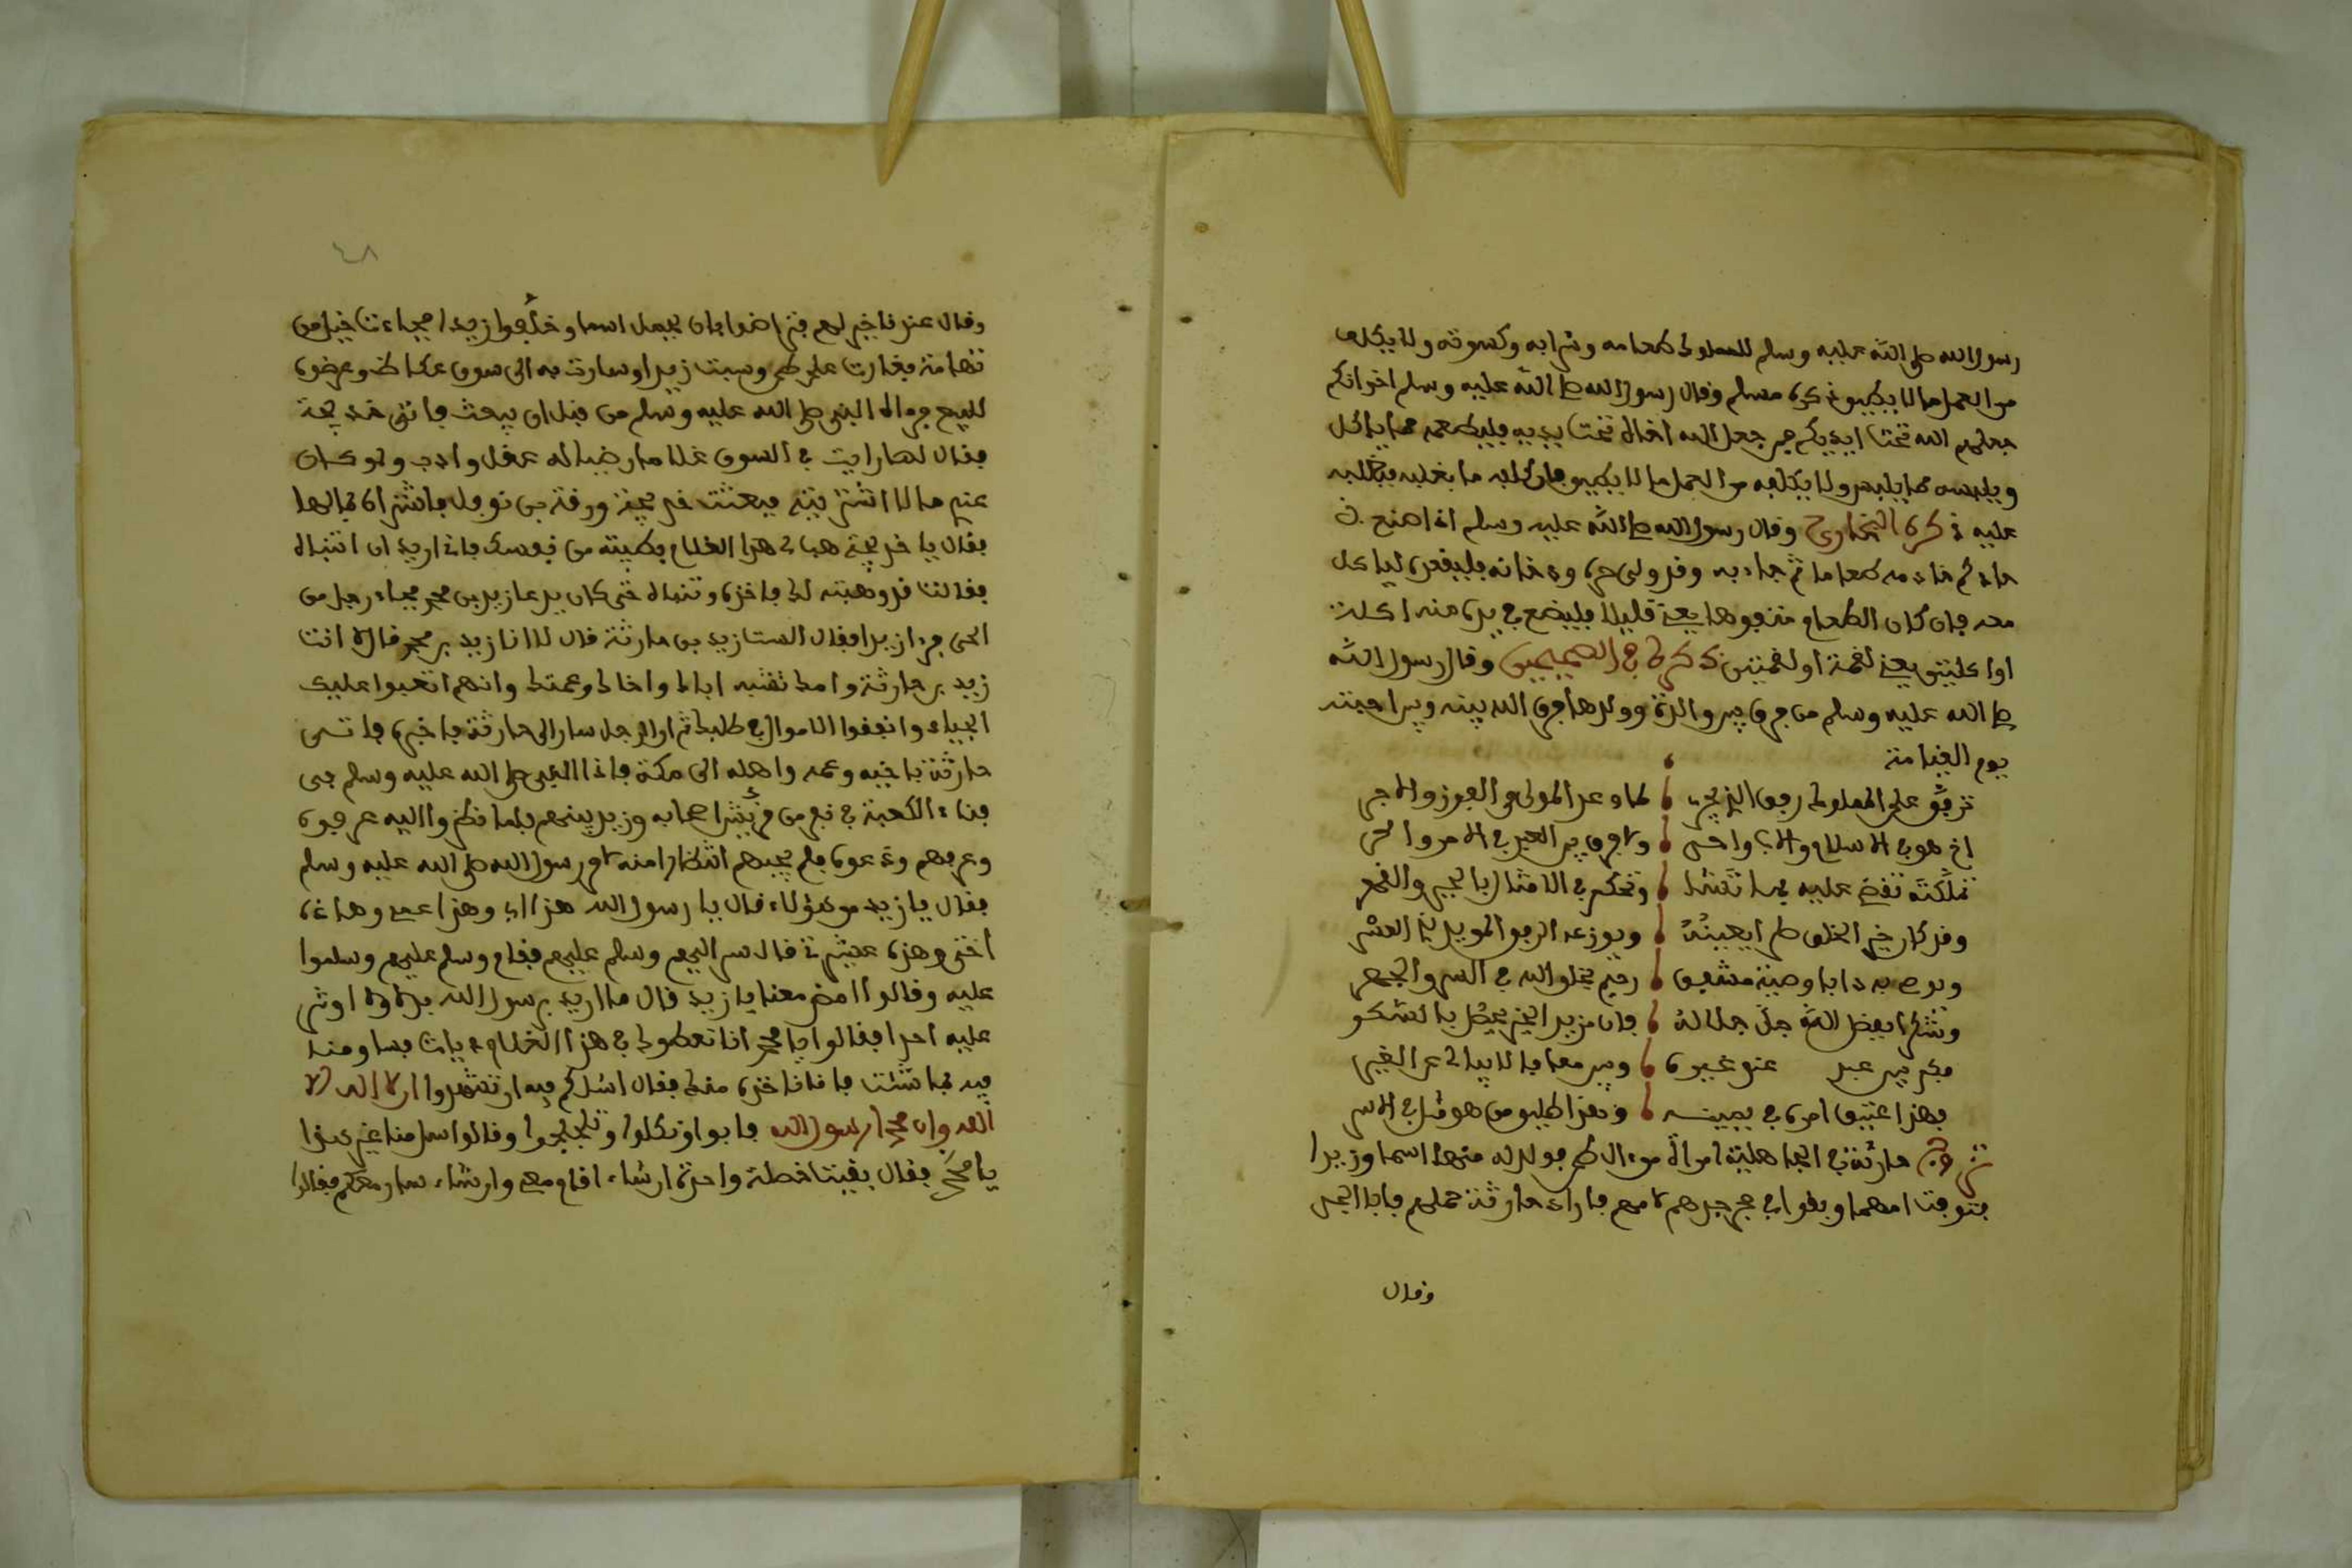 رسول الله صلى الله عليه وسلم للمملوك طعامه وشرابه وكسوته ولا يكلف
من العمل ما لا يطيق ذكره مسلم وقال رسول الله صلى الله عليه وسلم اخوانكم
جعلهم الله تحت ايديكم فمن جعل الله اخاه تحت يديه فليطعمه مما ياكل
ويلبسه مما يلبس ولا يكلفه من العمل ما لا يطيق فان كلفه ما يغلبه
عليه ذكره البخاري وقال رسول الله صلى الله عليه وسلم اذا صنع
خادمه طعاما ثم جاء به وقد ولي حره ودخانه فليقعده لياكل
معه فان كان الطعام مشفوها يعني قليلا فليضع في يده منه اكلة
او اكلتين يعني لقمة او لقمتين ذكره في الصحيحين وقال رسول الله
صلى الله عليه وسلم من فرق بين والدة وولدها فرق الله بينه وبين احبته
يوم القيامة
ترفق على المملوك رفق الذي يرى
اخ هو في الاسلام
تملكته تقضي عليه بما تشا وتحكم في الامثال بالجبر والقهر
وقد كان خير الخلق طرا يعينه
ويوصي به دابا وصية مشفق رحيم بخلق الله في السر والجهر
وشكرا بفضل الله جل جلاله فان مزيد الخير يحصل بالشكر
فكم بين عبد عند غيره
فهذا عتيق امره في يمينه وهذا طليق من هو مثل في الاسر
تزوج حارثة في الجاهلية امراة من طي فولد له منها اسما وزيدا
فتوفت امهما وبقوا في حجر جدهم لامهم فاراد حارثة حملهم فابا الجد
وقال
٤٨
وقال عندنا خير لهم فتراضوا بان يحمل اسما وخلفوا زيدا فجاءت خيل من
تهامة فغارت على طي وسبت زيدا وسارت به الى سوق عكاظ وعرضوه
للبيع فراه النبي صلى الله عليه وسلم من قبل ان يبعث فاتى خديجة
فقال لها رايت في السوق غلاما رضيا له عقل وادب ولو كان
عندي مال لاشتريته فبعثت خديجة ورقة بن نوفل فاشتراه بمالها
فقال يا خديجة هبي لي هذا الغلام بطيبة من نفسك فاني اريد ان اتبناه
فقالت قد وهبته لك فاخذه وتبناه حتى كان يدعا زيد بن محمد فجاء رجل من
الحي فراى زيدا فقال الست زيد بن حارثة قال لا انا زيد بن محمد قال لا انت
زيد بن حارثة وامك تشبه اباك واخاك وعمك وانهم اتعبوا عليك
الجياد وانفقوا الاموال في طلبك ثم ان الرجل سار الى حارثة فاخبره فاتى
حارثة باخيه وعمه واهله الى مكة فاذا النبي صلى الله عليه وسلم في
فناء الكعبة في نفر من قريش اصحابه وزيد بينهم فلما نظروا اليه عرفوه
وعرفهم ودعوه فلم يجبهم انتظارا منه لامر رسول الله صلى الله عليه وسلم
فقال يا زيد من هؤلاء قال يا رسول الله هذا ابي وهذا عمي وهذا
اخي وهذه عشيرتي قال سر اليهم وسلم عليهم فقام وسلم عليهم وسلموا
عليه وقالوا امض معنا يا زيد قال ما اريد برسول الله بدلا ولا اوثر
عليه احدا فقالوا يا محمد انا نعطوك في هذا الغلام ديات
فيه بما شئت فانا ناخذه منك فقال اسالكم فيه ان تشهدوا ان لا اله الا
الله وان محمدا رسول الله فابوا وتكلوا وتلجلجوا وقالوا سل منا غير هذا
يا محمد فقال بقيت خصلة واحدة ان شاء اقام معي وان شاء سار معكم فقالوا